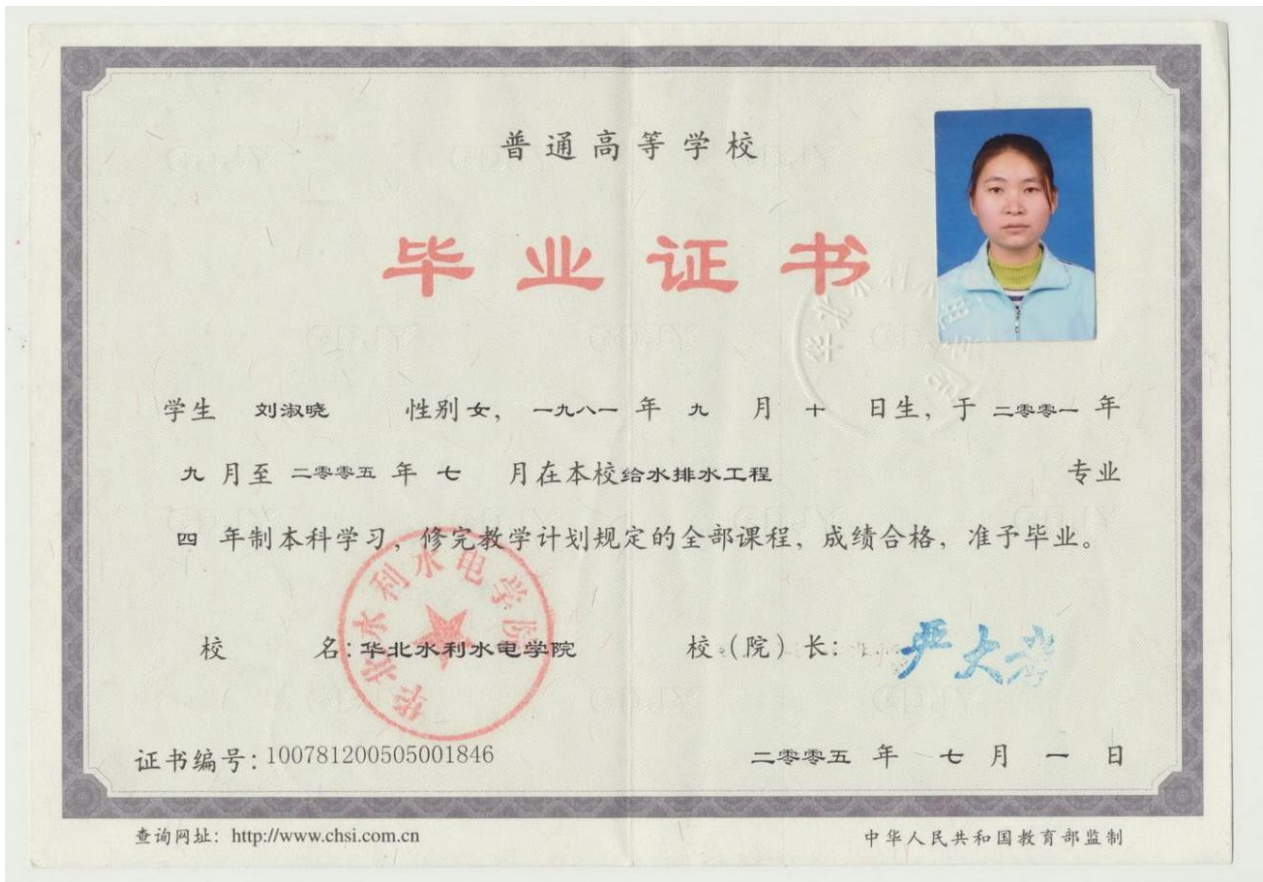 普通高等学校
毕业证书
学生 刘淑晓 性别 女, 一九八一 年 九 月 十 日生, 于 二零零一 年
九 月至 二零零五 年 七 月在本校 给水排水工程 专业
四 年制本科学习, 修完教学计划规定的全部课程, 成绩合格, 准予毕业。
校 名: 华北水利水电学院 校（院）长:
华北水利水电学院
证书编号: 100781200505001846 二零零五 年 七 月 一 日
查询网址: http://www.chsi.com.cn 中华人民共和国教育部监制